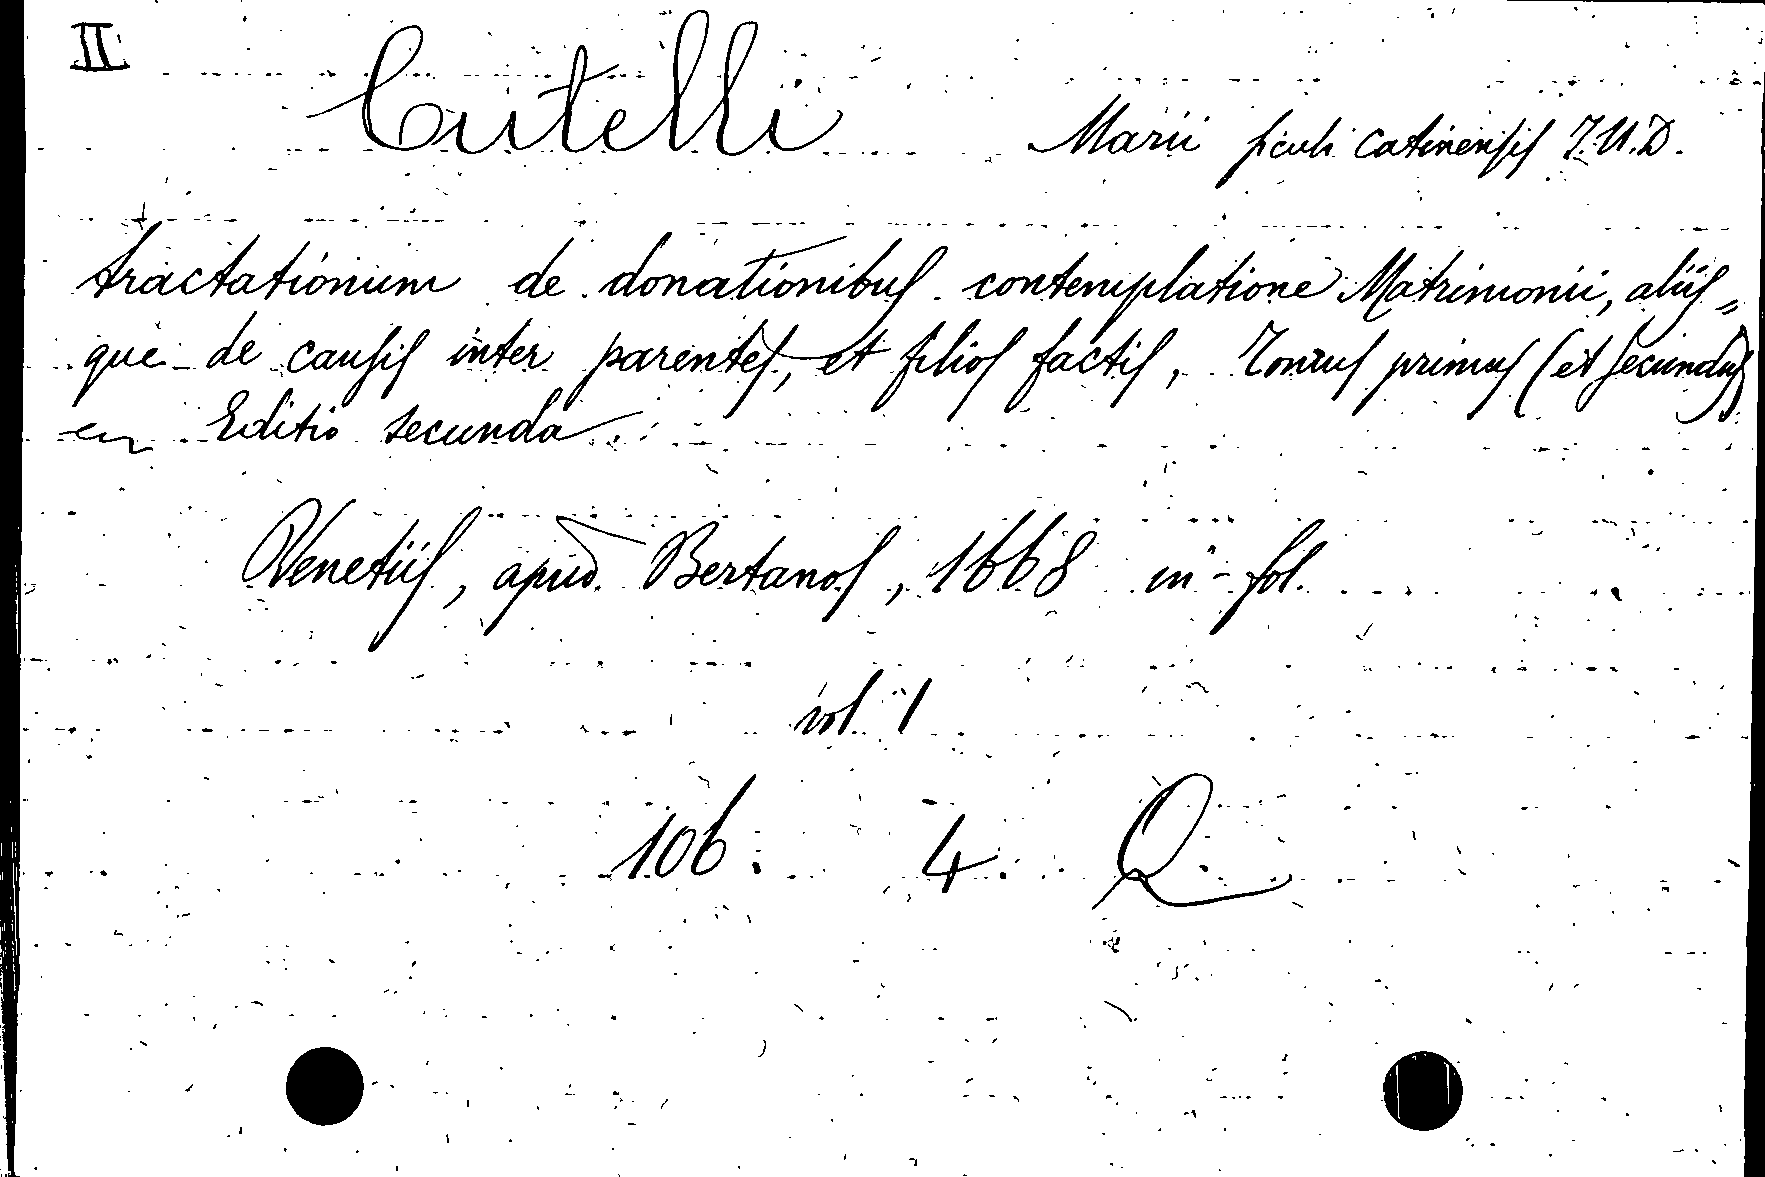 II
Cutelli Marii siculi Catinensis J.U.D.
tractationum de donationibus contemplatione Matrimonii, aliis=
que de causis inter parentes, et filios factis, Tomus primus (et secundus)
Editio secunda
Venetiis, apud Bertanos, 1668 in-fol.
vol. 1
106. 4. Q.